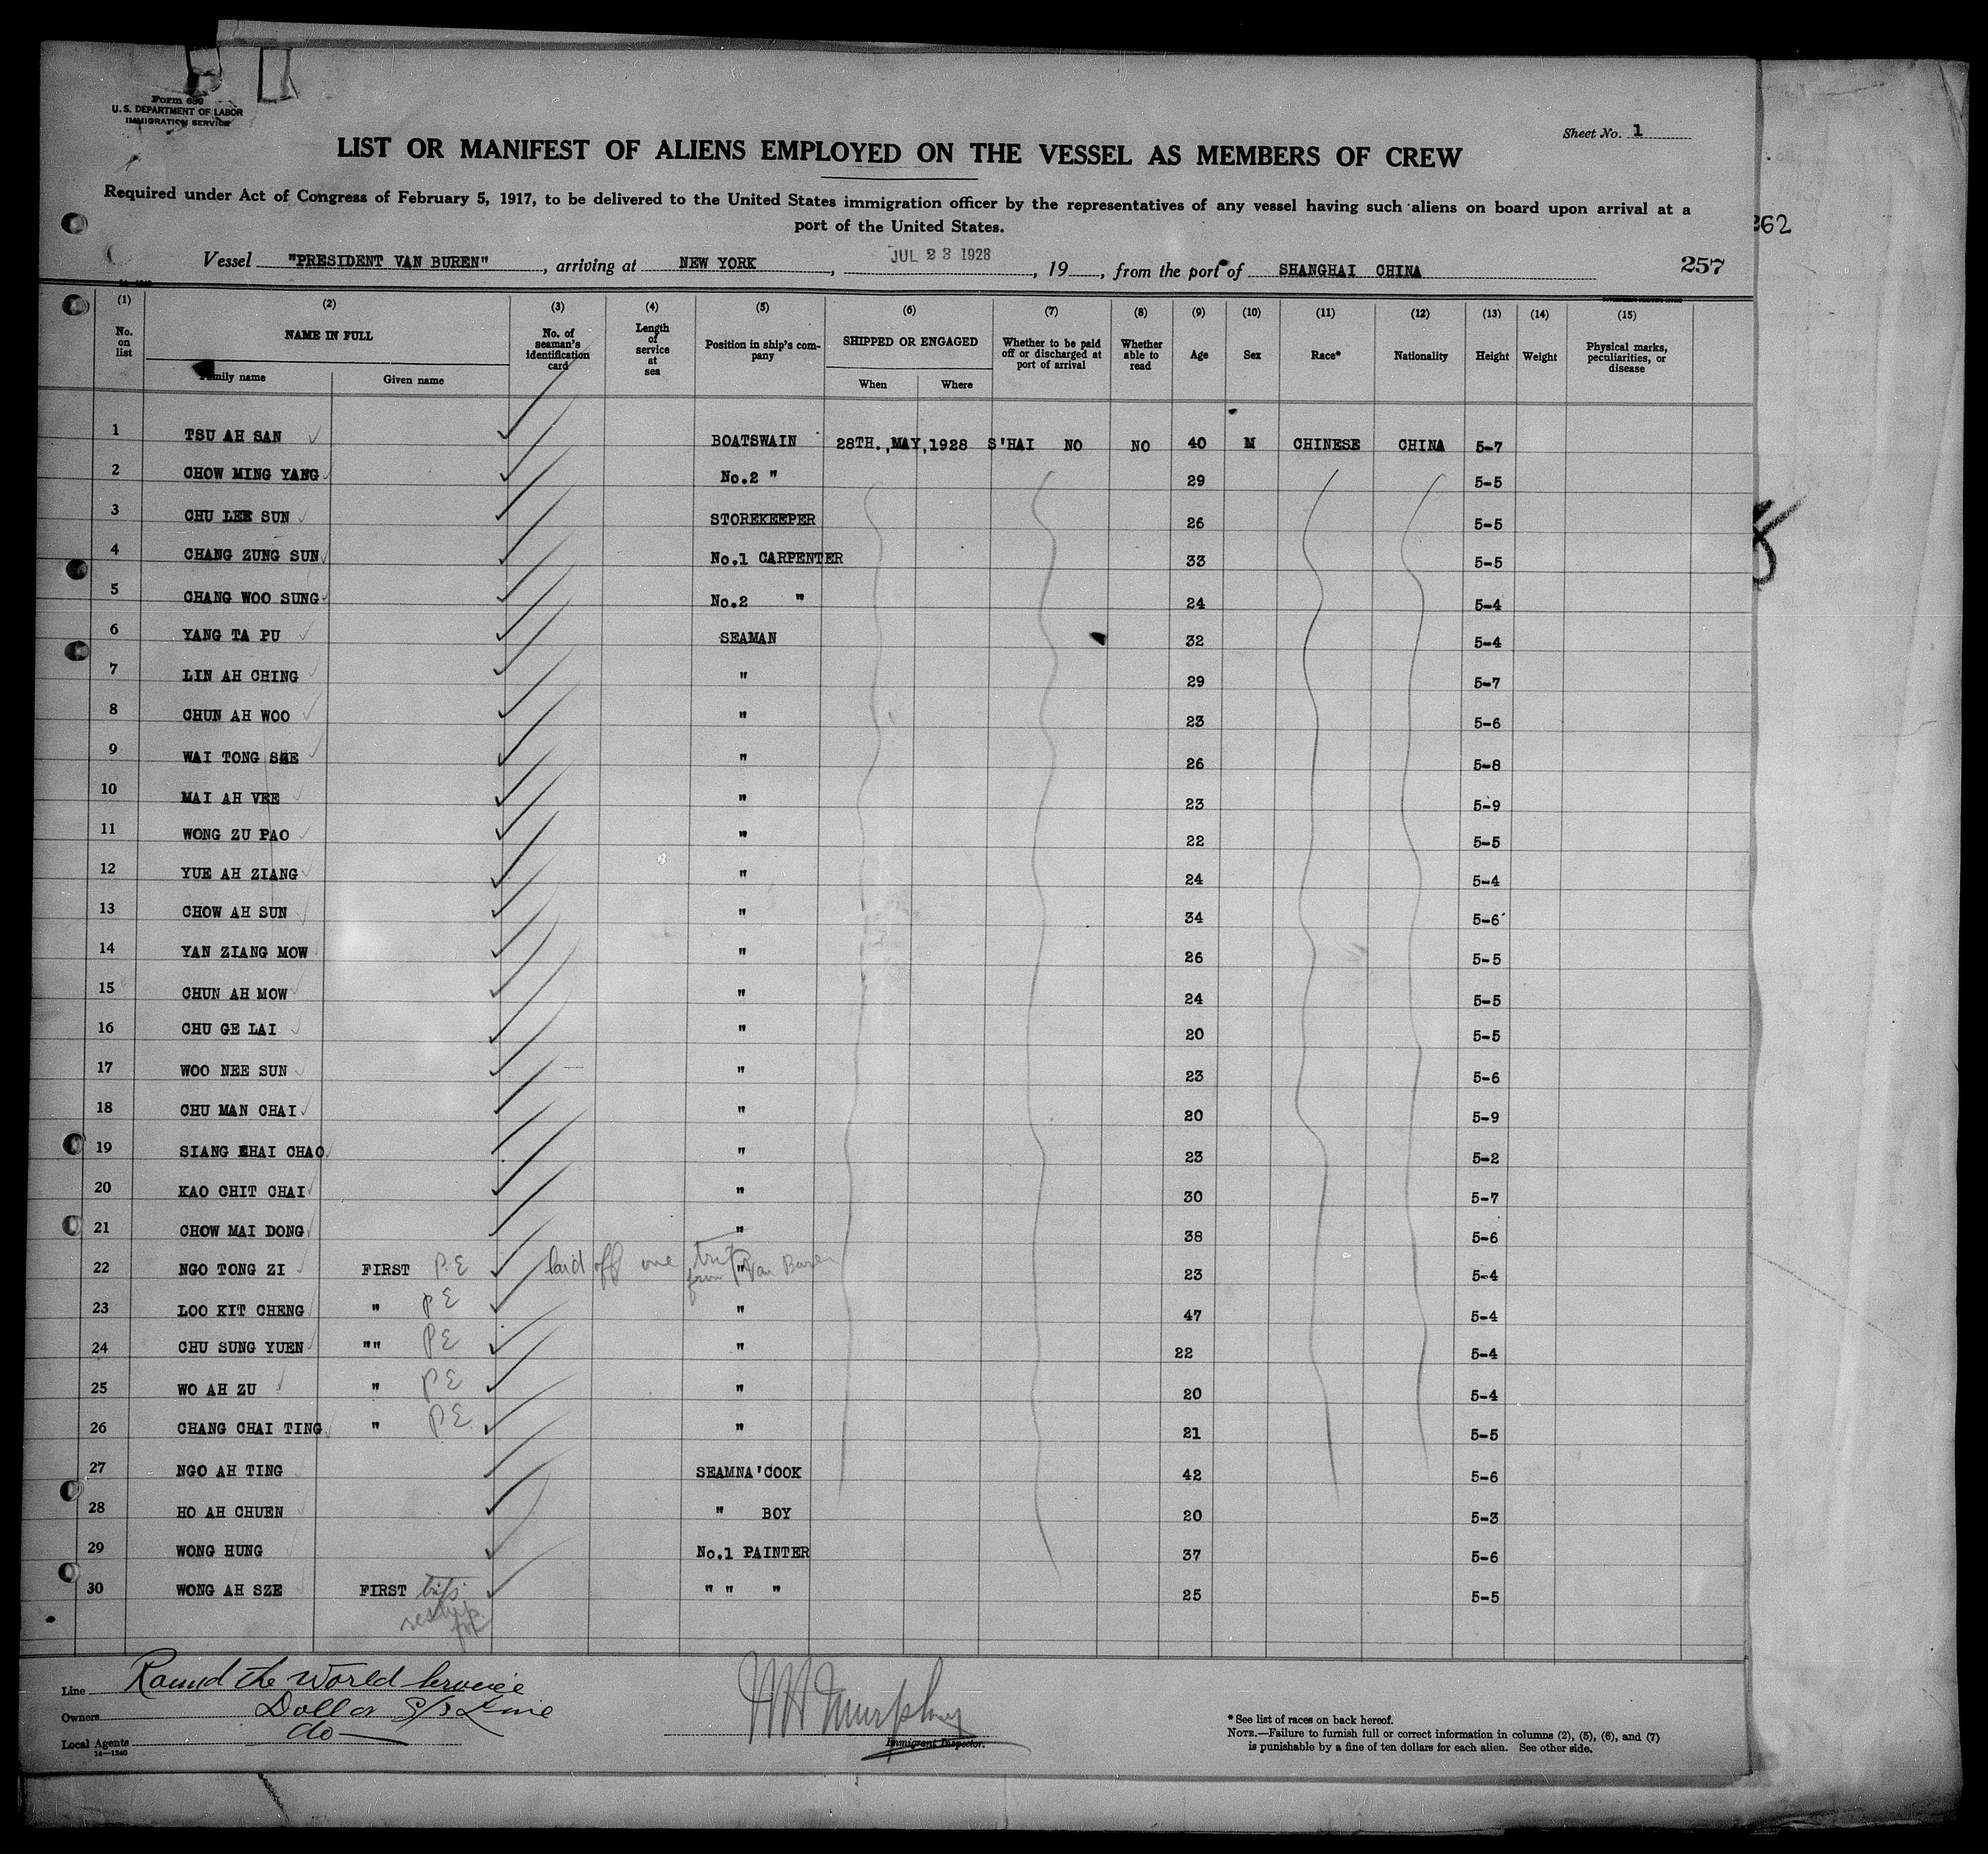 Form 680
U. S. DEPARTMENT OF LABOR
IMMIGRATION SERVICE
Sheet No. 1
LIST OR MANIFEST OF ALIENS EMPLOYED ON THE VESSEL AS MEMBERS OF CREW
Required under Act of Congress of February 5, 1917, to be delivered to the United States immigration officer by the representatives of any vessel having such aliens on board upon arrival at a
port of the United States.
262
Vessel "PRESIDENT VAN BUREN", arriving at NEW YORK, JUL 23 1928, 19, from the port of SHANGHAI CHINA
257
(1) (2) (3) (4) (5) (6) (7) (8) (9) (10) (11) (12) (13) (14) (15)
No. on list NAME IN FULL Family name Given name No. of seaman's identification card Length of service at sea Position in ship's company SHIPPED OR ENGAGED When Where Whether to be paid off or discharged at port of arrival Whether able to read Age Sex Race* Nationality Height Weight Physical marks, peculiarities, or disease
1 TSU AH SAN BOATSWAIN 28TH.,MAY,1928 S'HAI NO NO 40 M CHINESE CHINA 5-7
2 CHOW MING YANG No.2 " 29 5-5
3 CHU LEE SUN STOREKEEPER 26 5-5
4 CHANG ZUNG SUN No.1 CARPENTER 33 5-5
5 CHANG WOO SUNG No.2 " 24 5-4
6 YANG TA PU SEAMAN 32 5-4
7 LIN AH CHING " 29 5-7
8 CHUN AH WOO " 23 5-6
9 WAI TONG SZE " 26 5-8
10 MAI AH VEE " 23 5-9
11 WONG ZU PAO " 22 5-5
12 YUE AH ZIANG " 24 5-4
13 CHOW AH SUN " 34 5-6
14 YAN ZIANG MOW " 26 5-5
15 CHUN AH MOW " 24 5-5
16 CHU GE LAI " 20 5-5
17 WOO NEE SUN " 23 5-6
18 CHU MAN CHAI " 20 5-9
19 SIANG CHAI CHAO " 23 5-2
20 KAO CHIT CHAI " 30 5-7
21 CHOW MAI DONG " 38 5-6
22 NGO TONG ZI FIRST P.E laid off one trip from Van Buren " 23 5-4
23 LOO KIT CHENG " PE " 47 5-4
24 CHU SUNG YUEN "" PE " 22 5-4
25 WO AH ZU " PE " 20 5-4
26 CHANG CHAI TING " PE " 21 5-5
27 NGO AH TING SEAMNA'COOK 42 5-6
28 HO AH CHUEN " BOY 20 5-3
29 WONG HUNG No.1 PAINTER 37 5-6
30 WONG AH SZE FIRST trip " " " 25 5-5
Line Round the World Service
Owners Dollar S/S Line
Local Agents do
14—1240
H H Murphy
Immigrant Inspector.
* See list of races on back hereof.
NOTE.—Failure to furnish full or correct information in columns (2), (5), (6), and (7)
is punishable by a fine of ten dollars for each alien. See other side.